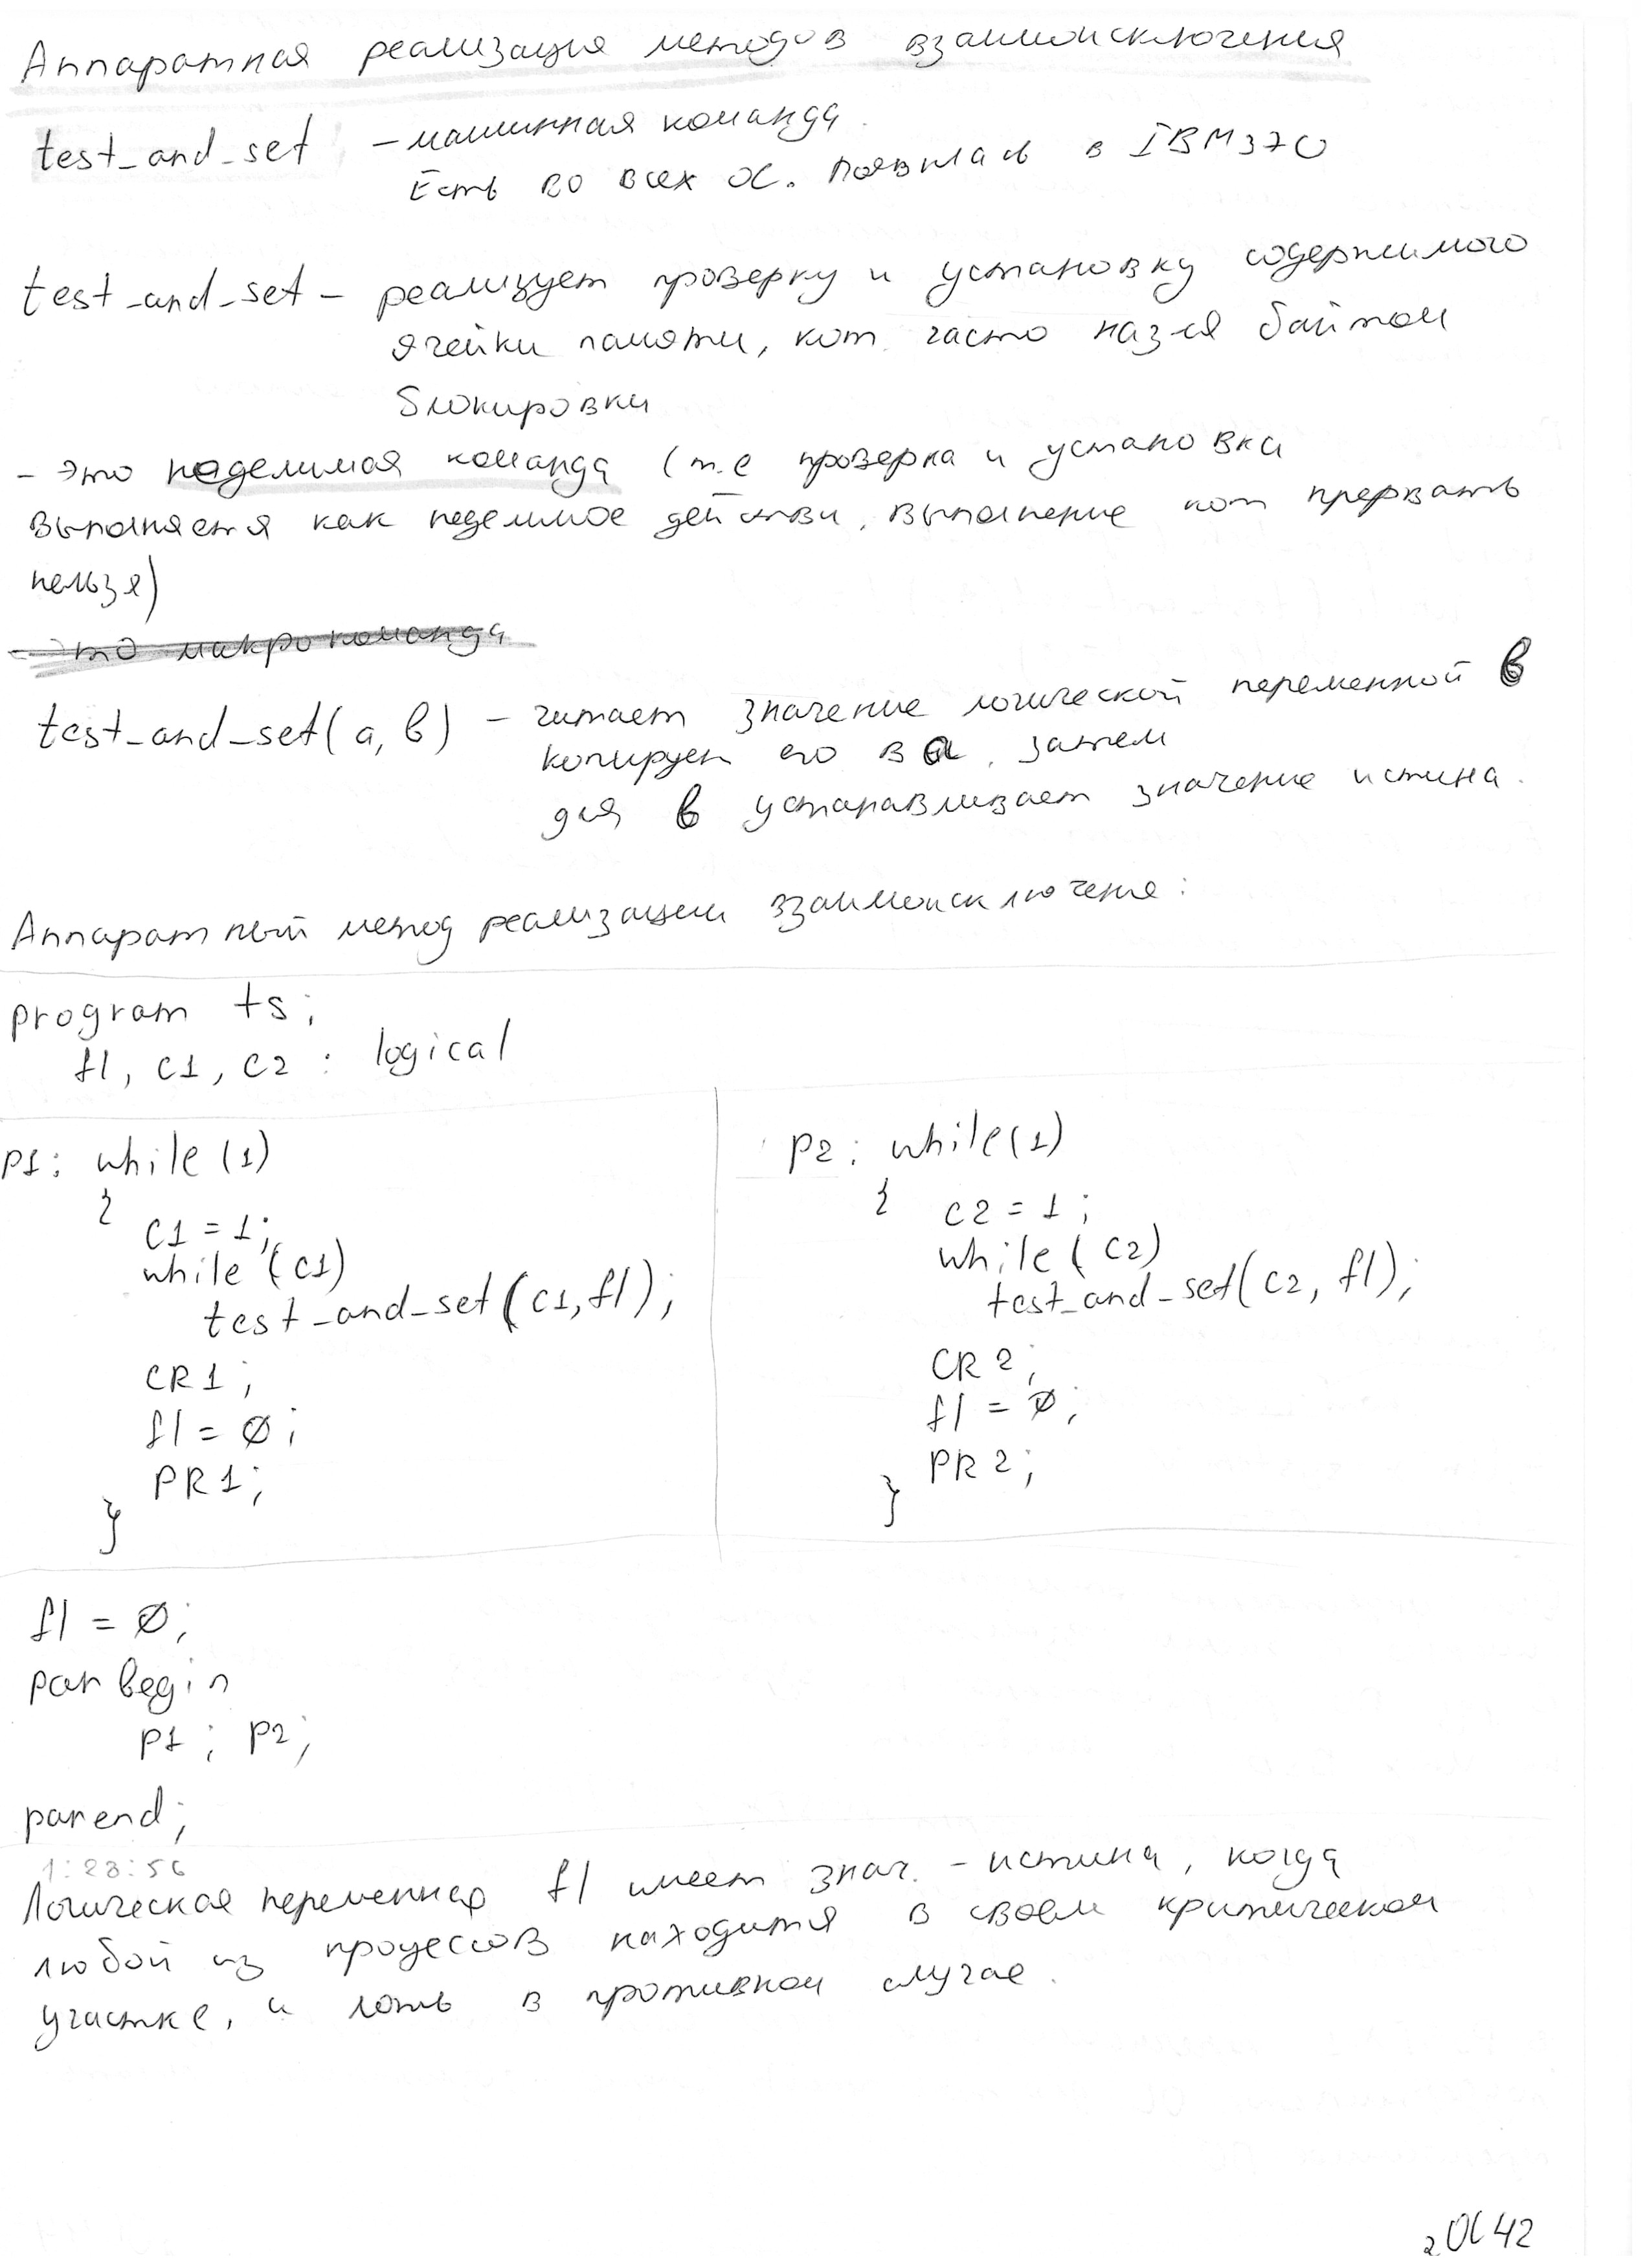 Аппаратная реализация методов взаимоисключения
test_and_set - машинная команда.
Есть во всех ОС. Появилась в IBM370
test_and_set - реализует проверку и установку содержимого
ячейки памяти, кот. часто наз-ся байтом
блокировки
- Это неделимая команда (т.е проверка и установка
выполняется как неделимое действи, выполнение кот прервать
нельзя)
- Это макрокоманда
test_and_set(a, b) - читает значение логической переменной b
копирует его в a, затем
для b устанавливает значение истина.
Аппаратный метод реализации взаимоисключения:
program ts;
fl, c1, c2 : logical
P1: while (1)
{
c1 = 1;
while (c1)
test_and_set(c1, fl);
CR1;
fl = Ø;
PR1;
}
P2: while(1)
{ c2 = 1;
while (c2)
test_and_set(c2, fl);
CR2;
fl = Ø;
PR2;
}
fl = Ø;
parbegin
P1; P2;
parend;
1:28:56
Логическая переменная fl имеет знач. - истина, когда
любой из процессов находится в своем критическом
участке, и ложь в противном случае.
2OC42